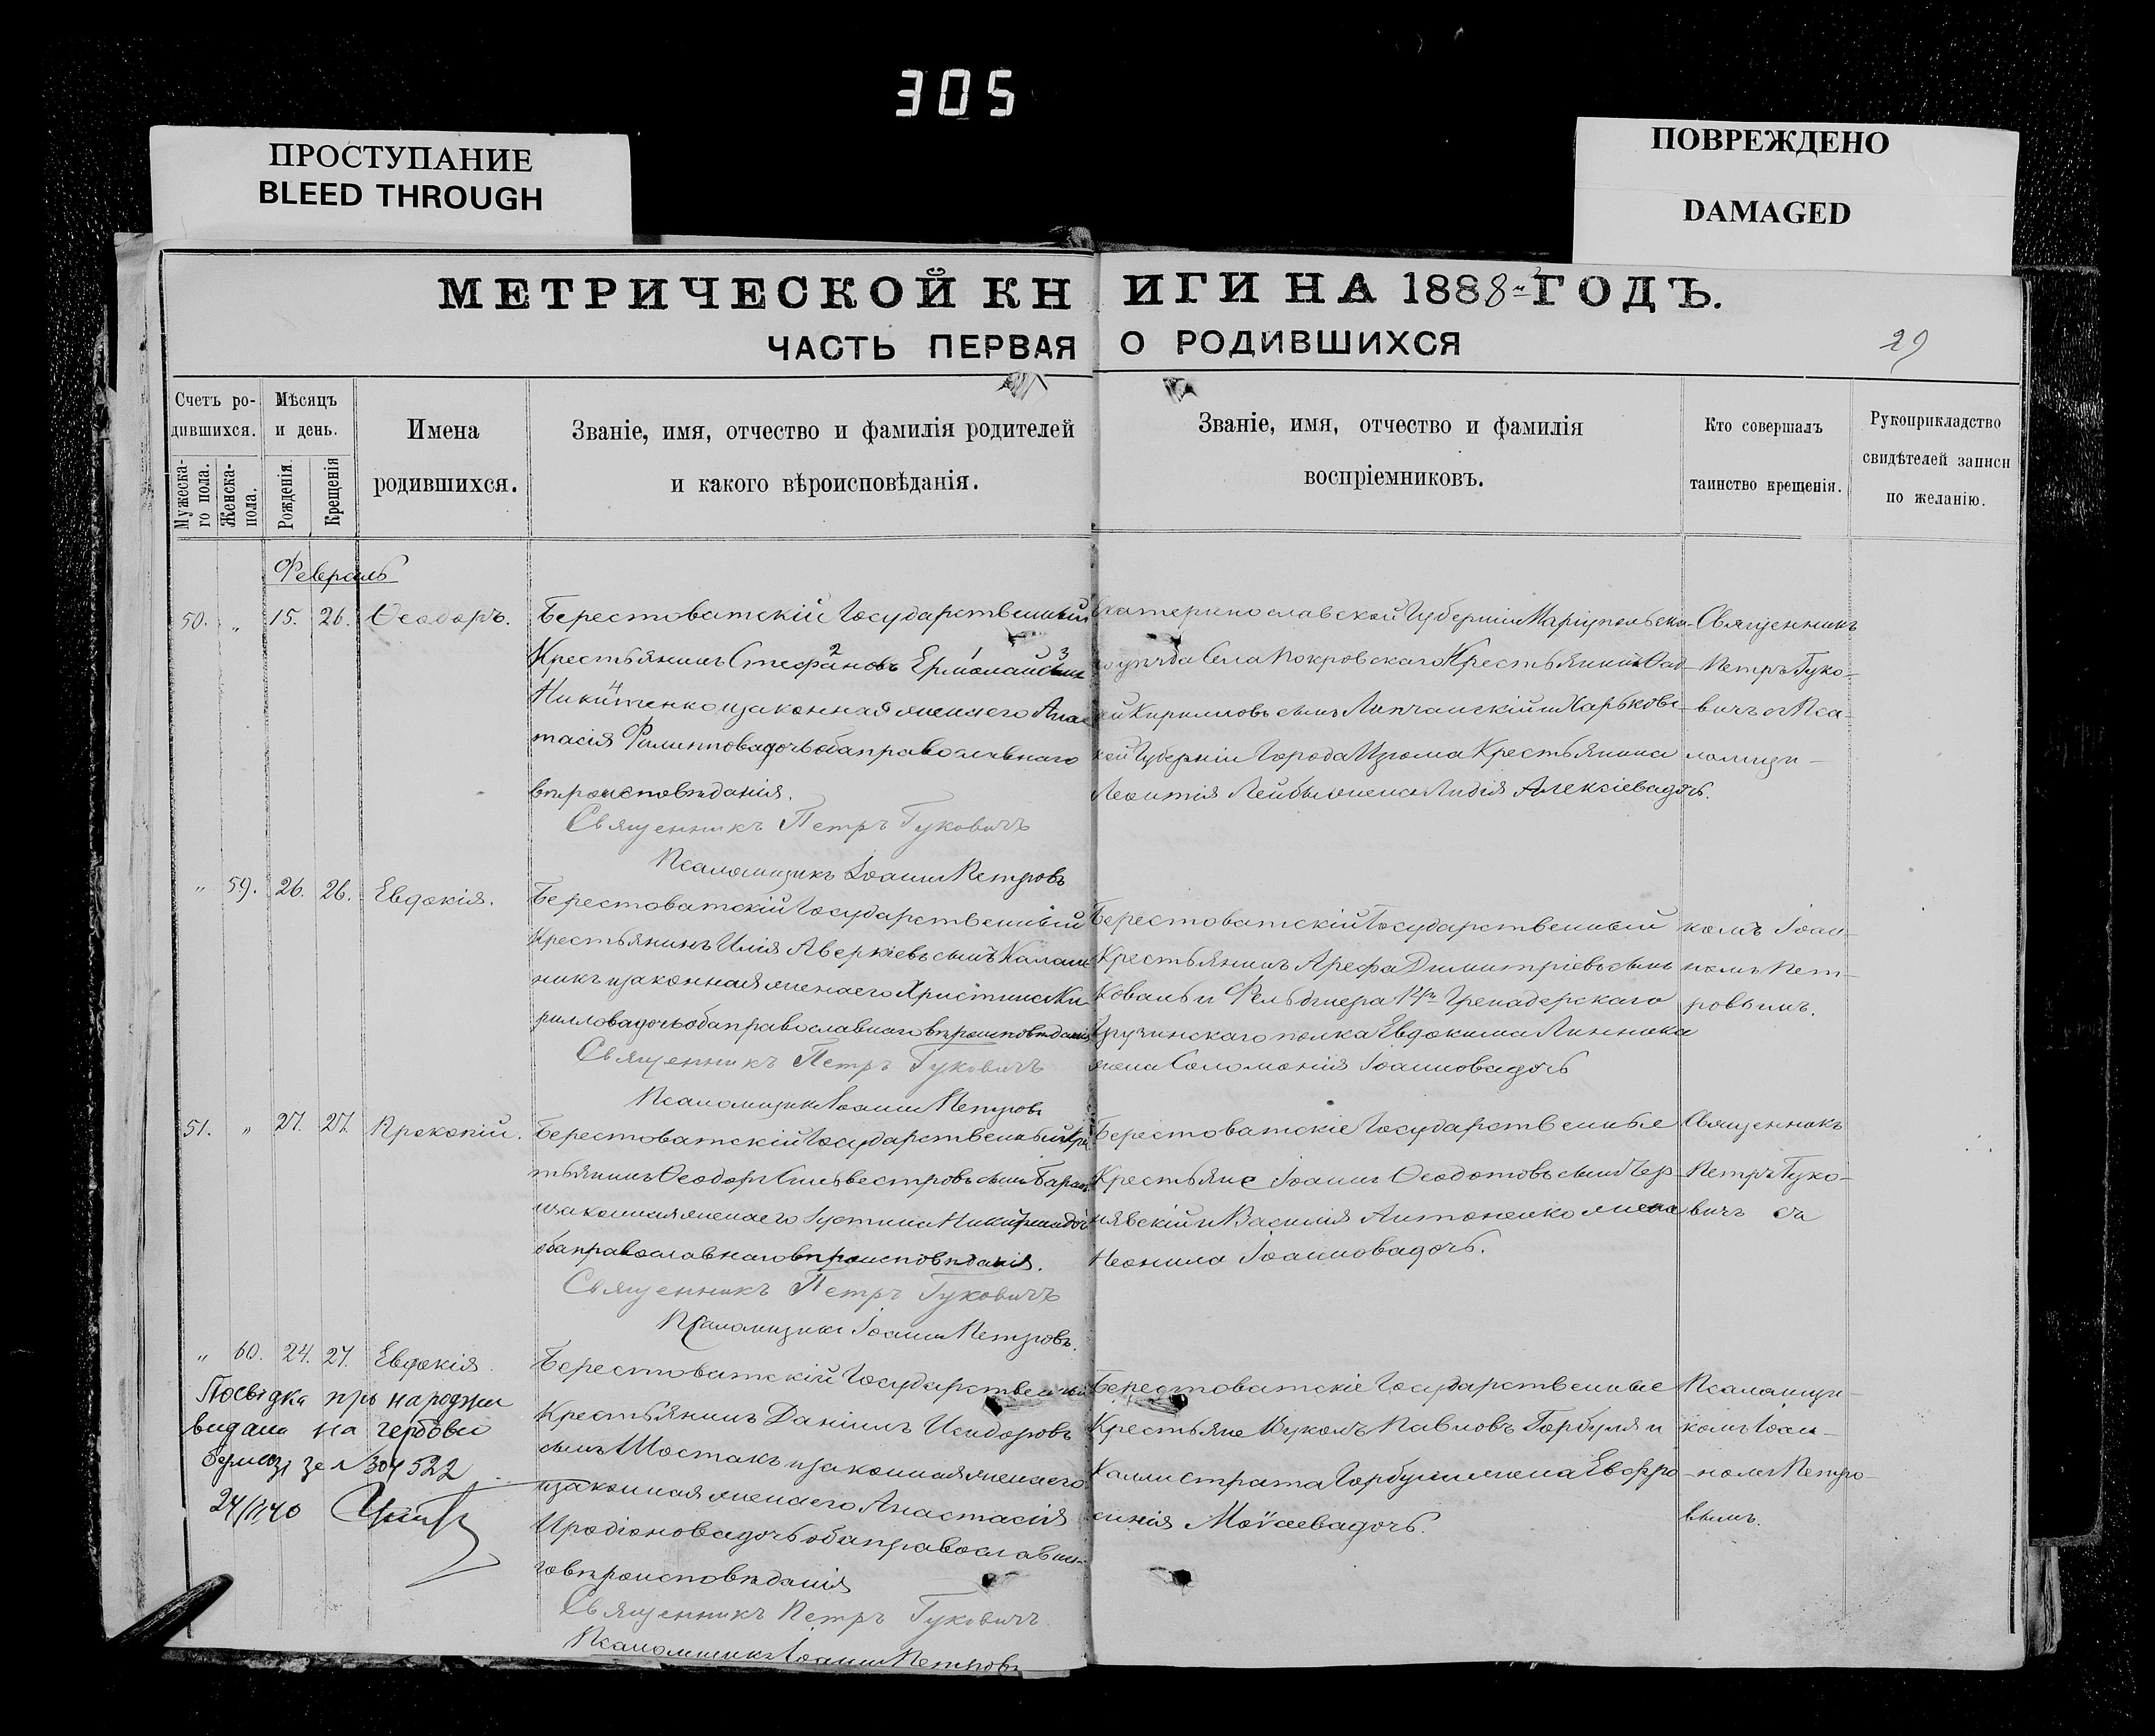 305
ПРОСТУПАНИЕ
BLEED THROUGH
ПОВРЕЖДЕНО
DAMAGED
МЕТРИЧЕСКОЙ КНИГИ НА 1888 ГОДЪ.
ЧАСТЬ ПЕРВАЯ О РОДИВШИХСЯ
29
Счетъ ро-
дившихся.
Мужеска-
го пола.
Женска-
пола.
Мѣсяцъ
и день.
Рожденія
Крещенія
Имена
родившихся.
Званіе, имя, отчество и фамилія родителей
и какого вѣроисповѣданія.
Званіе, имя, отчество и фамилія
воспріемниковъ.
Кто совершалъ
таинство крещенія.
Рукоприкладство
свидѣтелей записи
по желанію.
Февраль
50. „ 15. 26. Ѳеодоръ.
Берестоватскій Государственный
Крестьянинъ Стефановъ Ермолай сынъ
Никитенко и законная жена его Анас
тасія Филиппова дочь оба православнаго
вѣроисповѣданія.
Священникъ Петръ Гуковичъ
Псаломщикъ Іоаннъ Петровъ
Екатеринославской Губерніи Маріупольска-
го уѣзда Села Покровскаго Крестьянинъ
Кирилловъ сынъ и Харьковс-
кой Губерніи Города Изюма Крестьянина
Леонтія жена Лидія Алексіева дочь.
Священникъ
Петръ Гуко-
вичъ съ Пса-
ломщи-
„ 59. 26. 26. Евдокія.
Берестоватскій Государственный
Крестьянинъ Илія Аверкіевъ сынъ Калаш
никъ и законная жена его Христина Ки-
риллова дочь оба православнаго вѣроисповѣданія
Священникъ Петръ Гуковичъ
Псаломщикъ Іоаннъ Петровъ
Берестоватскій Государственный
Крестьянинъ Арефа Димитріевъ сынъ
Коваль и Фельдшера 14го Гренадерскаго
Грузинскаго полка Евдокима Линника
жена Соломонія Іоаннова дочь
комъ Іоан-
номъ Пет-
ровымъ.
51. „ 27. 27. Прокопій.
Берестоватскій Государственный Крес
тьянинъ Ѳеодоръ Сильвестровъ сынъ Баран
и законная жена его Іустина дочь
оба православнаго вѣроисповѣданія.
Священникъ Петръ Гуковичъ
Псаломщикъ Іоаннъ Петровъ.
Берестоватскіе Государственные
Крестьяне Іоаннъ Ѳеодотовъ сынъ Чер
нявскій и Василія Антоненко жена
Неонила Іоаннова дочь.
Священникъ
Петръ Гуко-
вичъ съ
„ 60. 24. 27. Евдокія.
Берестоватскій Государственный
Крестьянинъ Даніилъ Исидоровъ
сынъ Шостакъ и законная жена его
и законная жена его Анастасія
Иродіонова дочь оба православна-
го вѣроисповѣданія
Священникъ Петръ Гуковичъ
Псаломщикъ Іоаннъ Петровъ
Берестоватскіе Государственные
Крестьяне Вуколъ Павловъ Горбуля и
Каллистрата Горбули жена Евфро-
синія Моѵсеева дочь.
Псаломщи-
комъ Іоан-
номъ Петро-
вымъ.
Посвідка про народжен
видана на гербові
бумазі за № 304522